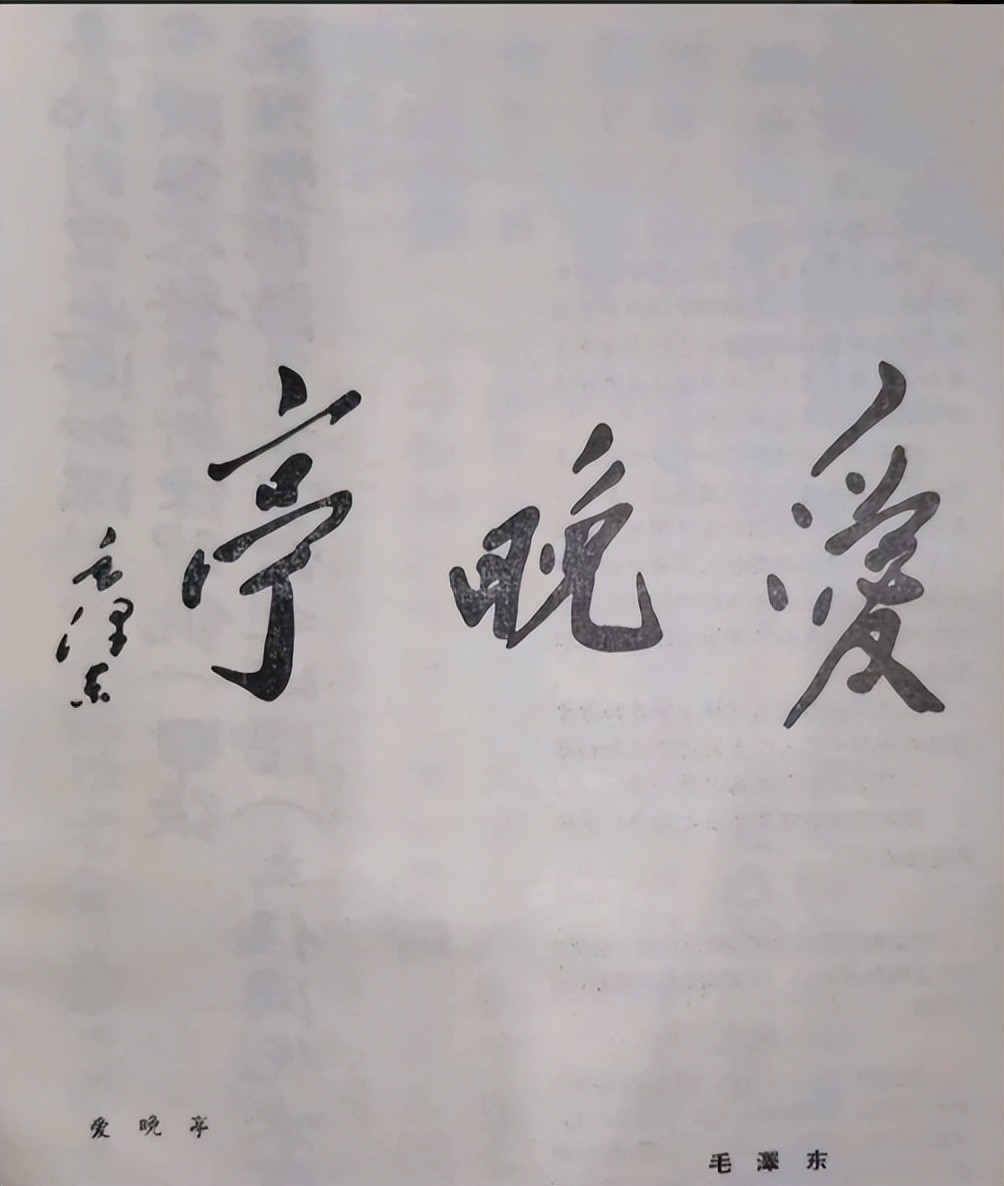 愛晚亭
毛泽东
爱晚亭
毛澤东